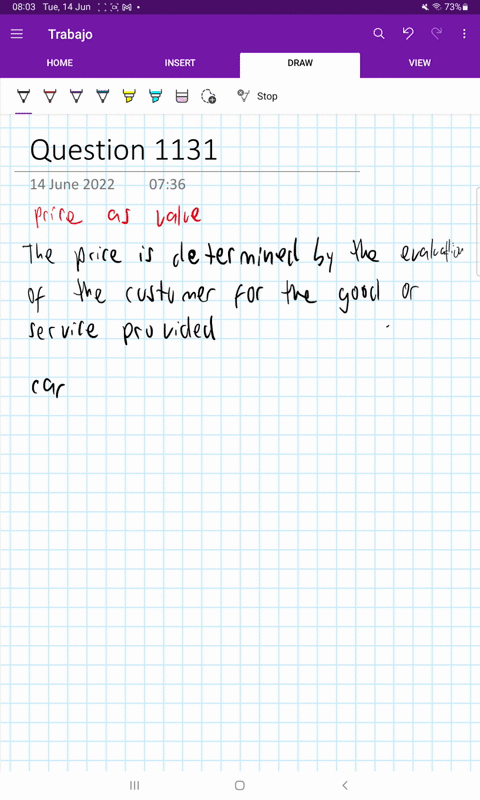 08:03 Tue, 14 Jun 73%
Trabajo
HOME INSERT DRAW VIEW
Stop
Question 1131
14 June 2022 07:36
price as value
The price is determined by the evaluation
of the custumer for the good or
service provided
car